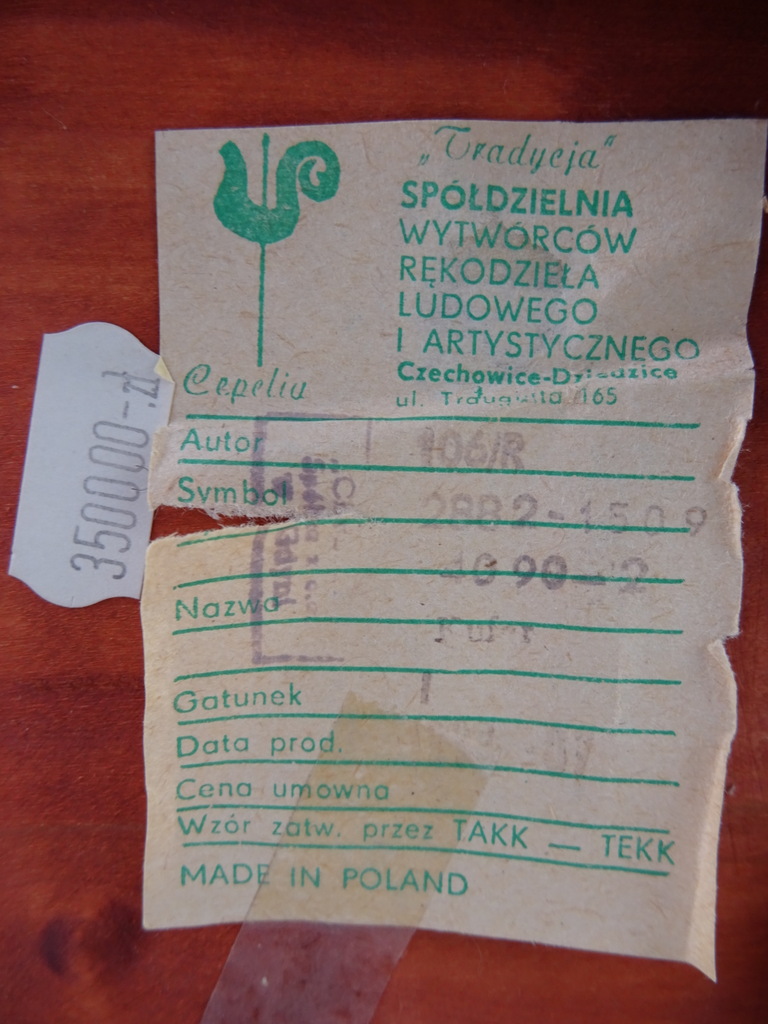 „Tradycja"
SPÓŁDZIELNIA
WYTWÓRCÓW
RĘKODZIEŁA
LUDOWEGO
I ARTYSTYCZNEGO
Czechowice-Dziedzice
ul. Traugutta 165
Cepelia
350000-zł
Autor 106/R
Symbol 2882-1509
90
Nazwa Kufer
Gatunek I
Data prod.
Cena umowna
Wzór zatw. przez TAKK — TEKK
MADE IN POLAND